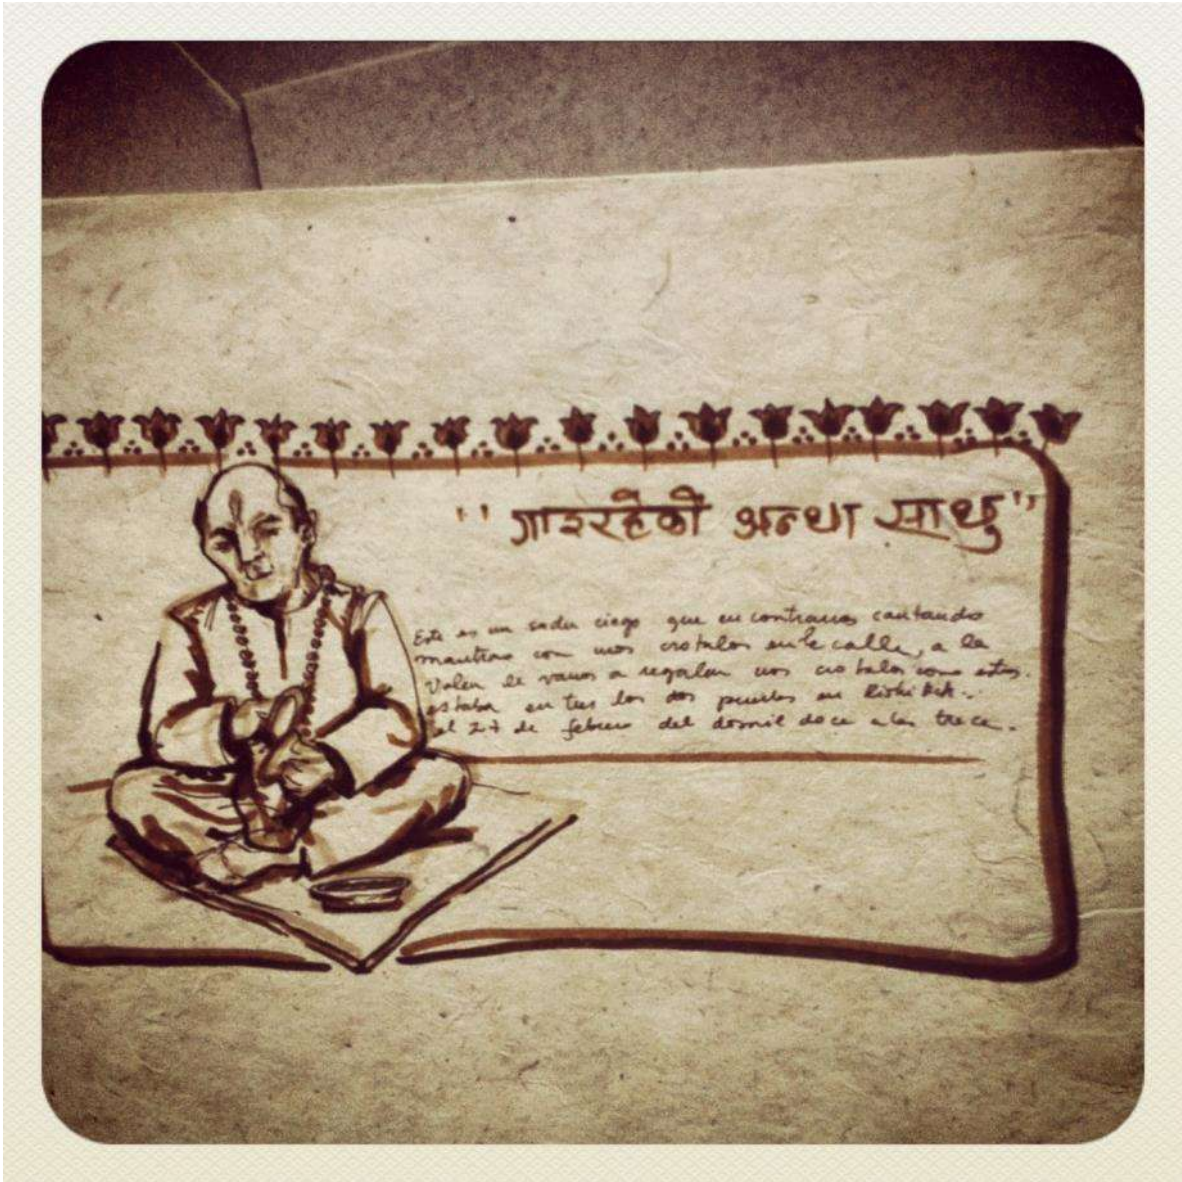 "गाइरहेको अन्धा साधु"
Este es un sadu ciego que encontramos cantando
mantras con unos crotalos en la calle, a la
Valen le vamos a regalar unos crotalos como estos.
estaba entre los dos puentes en
el 27 de febrero del dosmil doce a las trece.